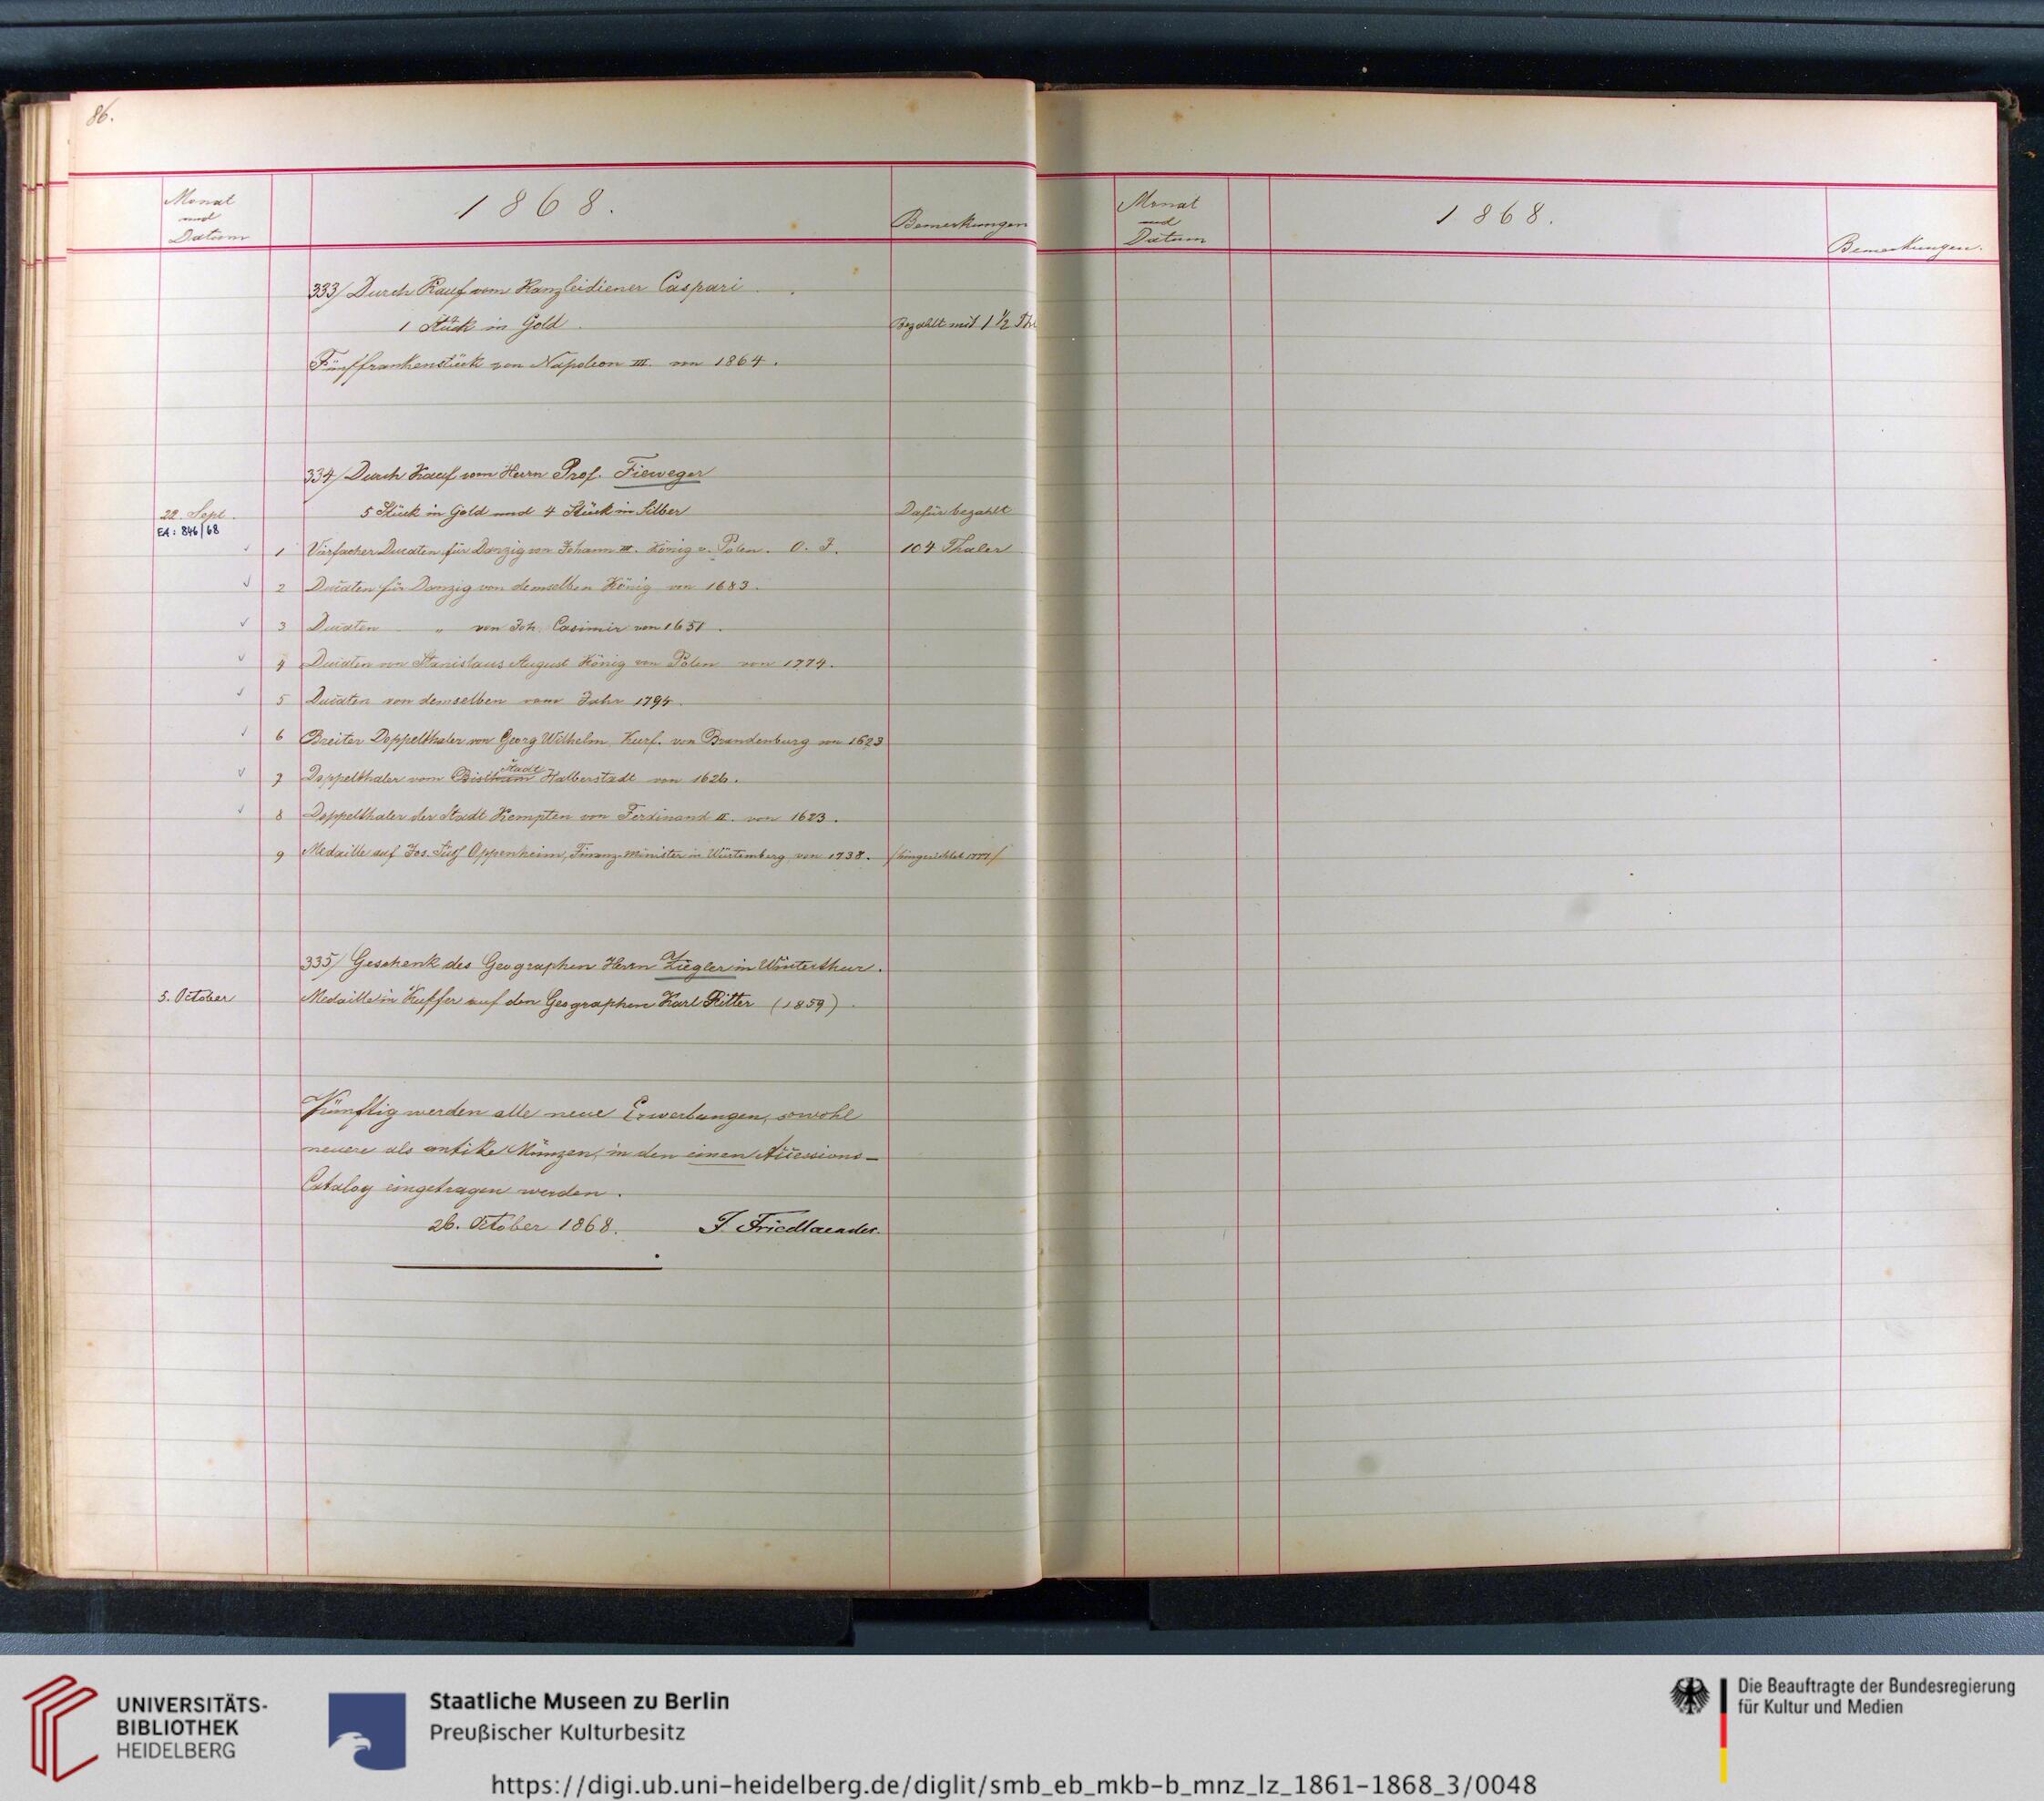 86.
Monat
und
Datum
1868.
Bemerkungen
333/ Durch Kauf vom Kanzleidiener Caspari
1 Stück in Gold.
Bezahlt mit 1 1/2 Thl
Fünffrankenstück von Napoleon III. von 1864.
334/ Durch Kauf vom Herrn Prof. Fieweger
22. Sept.
5 Stück in Gold und 4 Stück in Silber
Dafür bezahlt
EA: 846/68
1 Vierfacher Ducaten für Danzig von Johann III. König v. Polen. O. J.
104 Thaler
2 Ducaten für Danzig von demselben König von 1683.
3 Ducaten „ von Joh. Casimir von 1651.
4 Ducaten von Stanislaus August König von Polen von 1774.
5 Ducaten von demselben vom Jahr 1794.
6 Breiter Doppelthaler von Georg Wilhelm, Kurf. von Brandenburg von 1623
Stadt
7 Doppelthaler vom Bisthum Halberstadt von 1626.
8 Doppelthaler der Stadt Kempten von Ferdinand II. von 1623.
9 Medaille auf Jos. Süß Oppenheim, Finanz-Minister in Würtemberg von 1738.
335/ Geschenk des Geographen Herrn Ziegler in Winterthur.
5. October
Medaille in Kupfer auf den Geographen Karl Ritter (1859)
Künftig werden alle neue Erwerbungen, sowohl
neuere als antike Münzen, in den einen Accessions-
Catalog eingetragen werden.
26. October 1868. J. Friedlaender.
Monat
und
Datum
1868.
Bemerkungen.
UNIVERSITÄTS-
BIBLIOTHEK
HEIDELBERG
Staatliche Museen zu Berlin
Preußischer Kulturbesitz
Die Beauftragte der Bundesregierung
für Kultur und Medien
https://digi.ub.uni-heidelberg.de/diglit/smb_eb_mkb-b_mnz_lz_1861-1868_3/0048